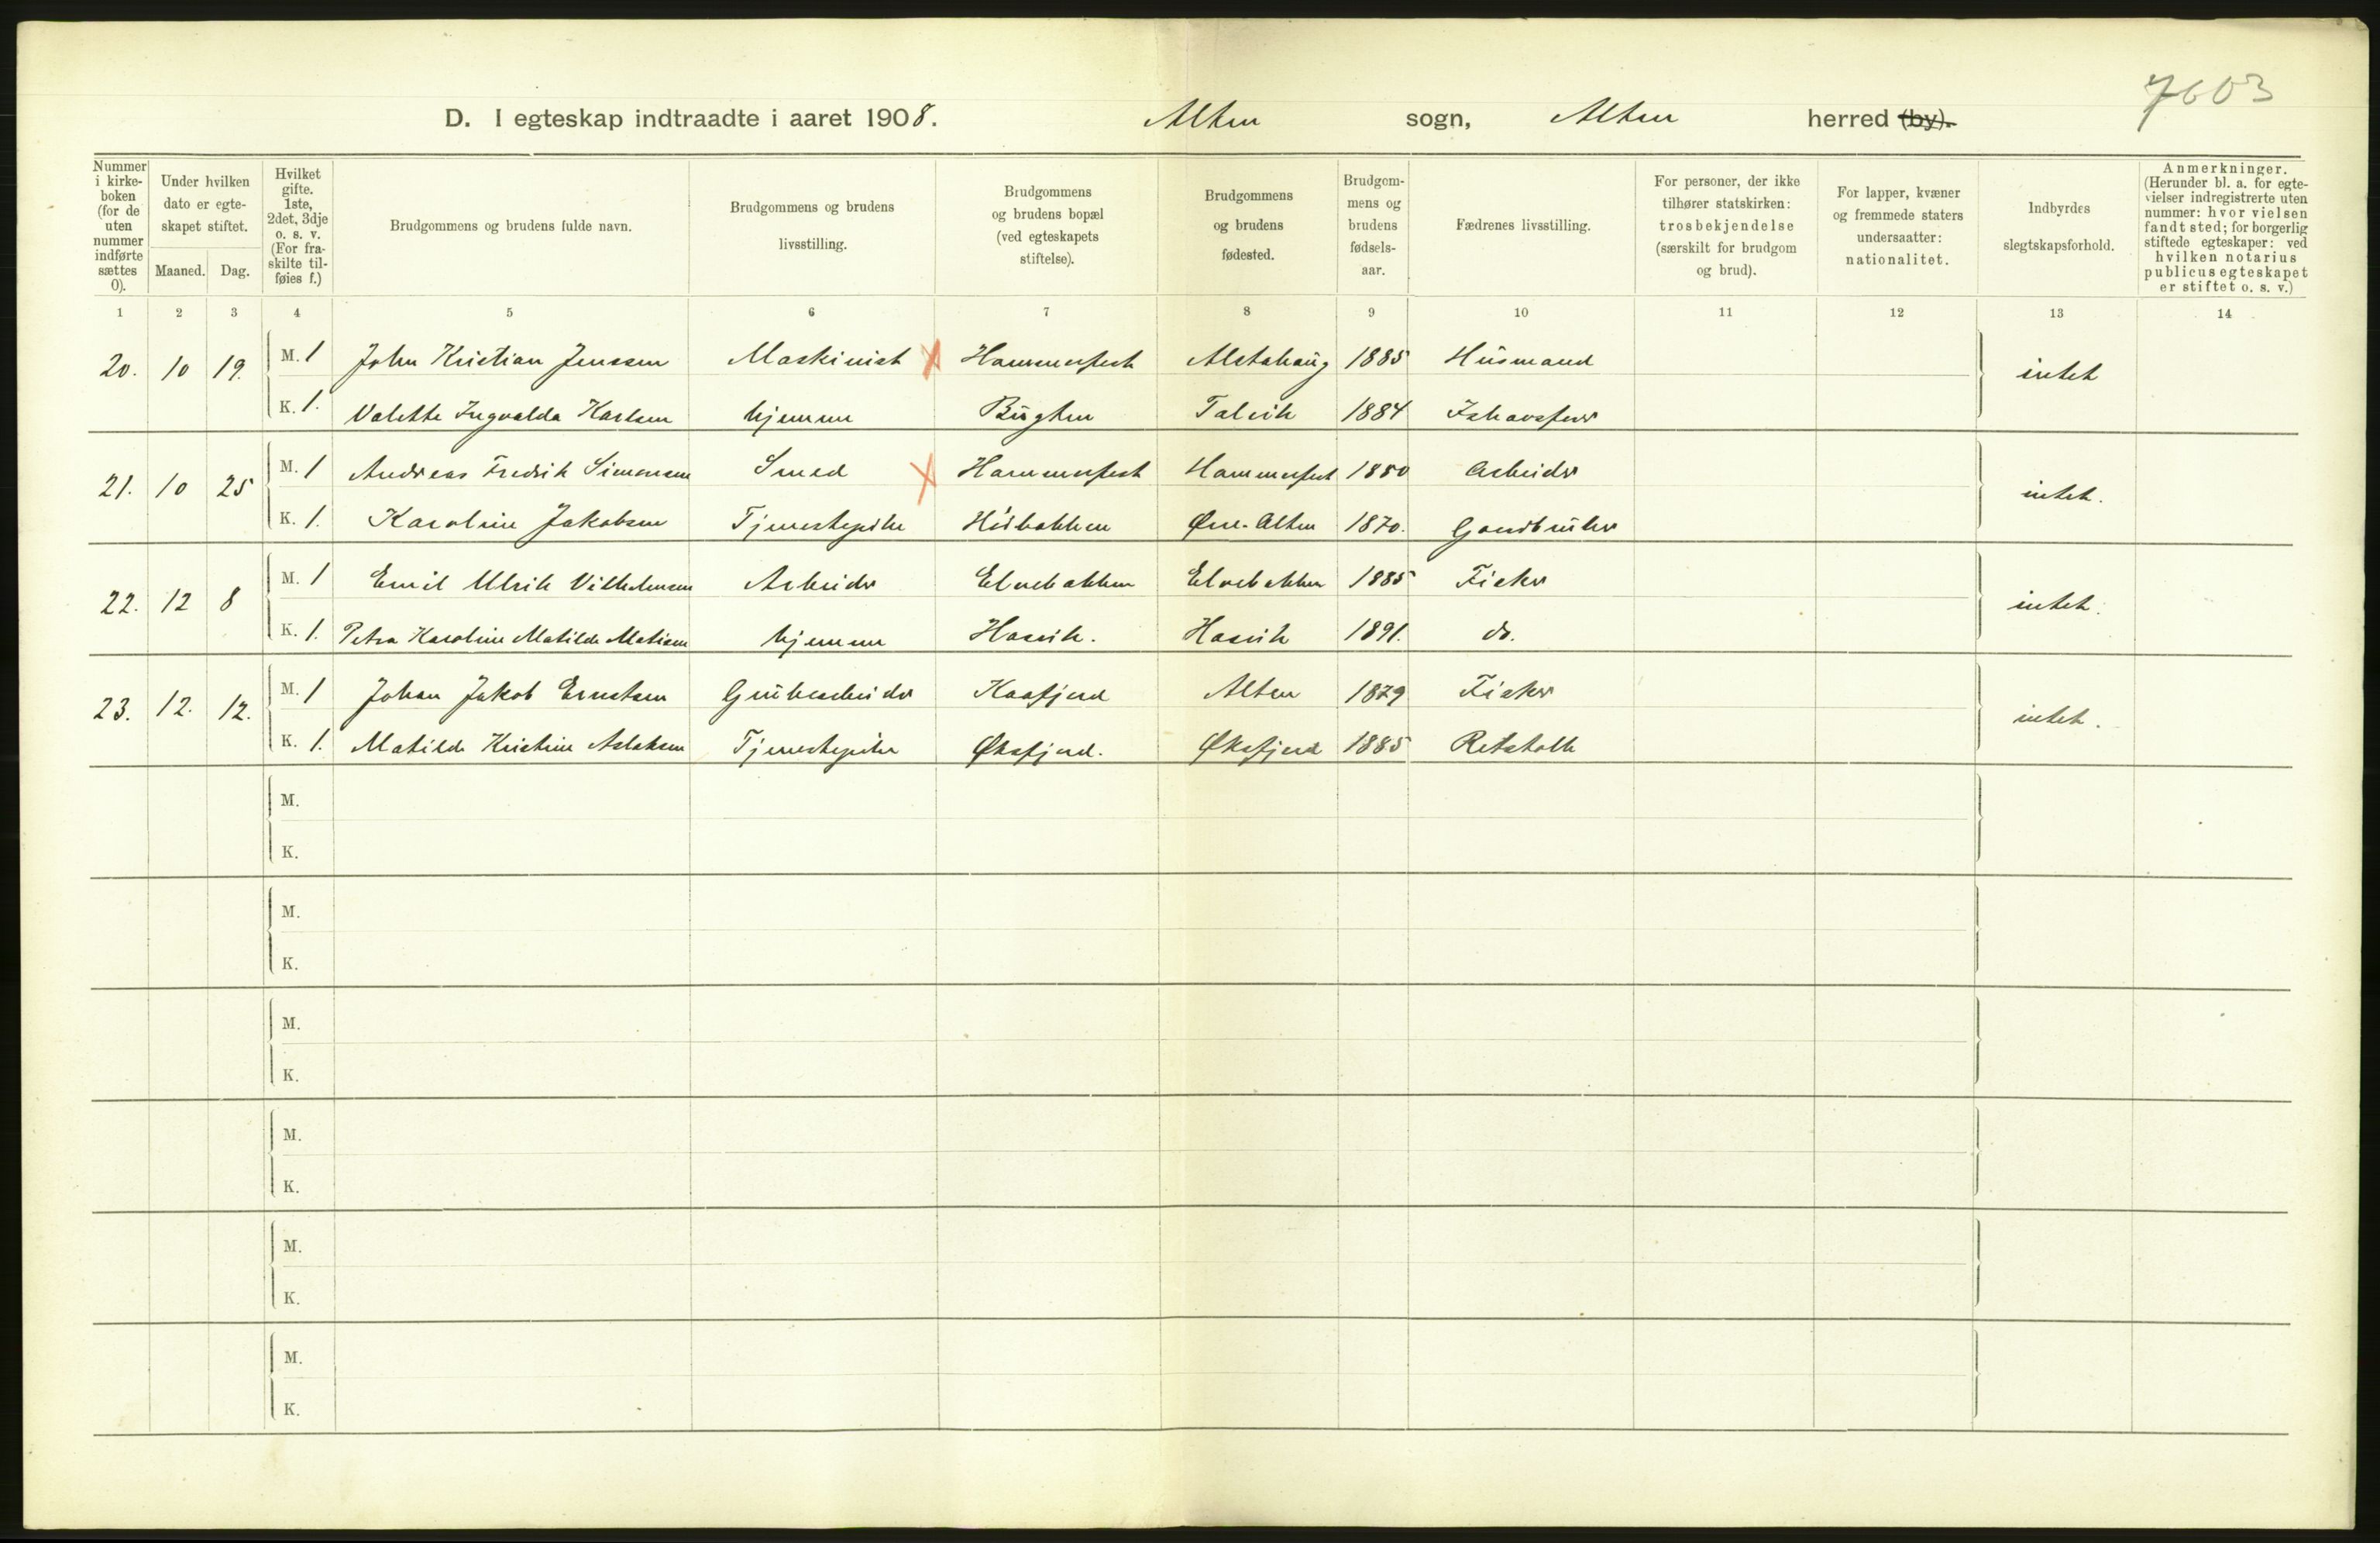 7603
D. I egteskap indtraadte i aaret 1908. Alten sogn, Alten herred (by).
Nummer i kirke-boken (for de uten nummer indførte sættes 0).
Under hvilken dato er egte-skapet stiftet.
Maaned. Dag.
Hvilket gifte. 1ste, 2det, 3dje o. s. v. (For fra-skilte til-føies f.)
Brudgommens og brudens fulde navn.
Brudgommens og brudens livsstilling.
Brudgommens og brudens bopæl (ved egteskapets stiftelse).
Brudgommens og brudens fødested.
Brudgom-mens og brudens fødsels-aar.
Fædrenes livsstilling.
For personer, der ikke tilhører statskirken: trosbekjendelse (særskilt for brudgom og brud).
For lapper, kvæner og fremmede staters undersaatter: nationalitet.
Indbyrdes slegtskapsforhold.
Anmerkninger. (Herunder bl. a. for egte-vielser indregistrerte uten nummer: hvor vielsen fandt sted; for borgerlig stiftede egteskaper: ved hvilken notarius publicus egteskapet er stiftet o. s. v.)
1 2 3 4 5 6 7 8 9 10 11 12 13 14
20. 10 19. M. 1 John Kristian Jenssen Maskinist X Hammerfest Alstahaug 1885 Husmand intet
K. 1. Valette Ingvalda Karlsen hjemme Bugten Talvik 1884 Ishavsfører
21. 10 25 M. 1 Andreas Fredrik Simonsen Smed X Hammerfest Hammerfest 1880 Arbeider intet.
K. 1. Karoline Jakobsen Tjenestepike Øvre-Alten 1870. Gaardbruker
22. 12 8 M. 1 Emil Ulrik Vilhelmsen Arbeider Elvebakken Elvebakken 1885 Fisker intet.
K. 1. Petra Karoline Matilde Matisen hjemme Hasvik. Hasvik 1891. do.
23. 12. 12. M. 1 Johan Jakob Ernstsen Grubearbeider Kaafjord Alten 1879 Fisker intet.
K. 1. Matilde Kristine Aslaksen Tjenestepike Øksfjord. Øksfjord 1885
M.
K.
M.
K.
M.
K.
M.
K.
M.
K.
M.
K.